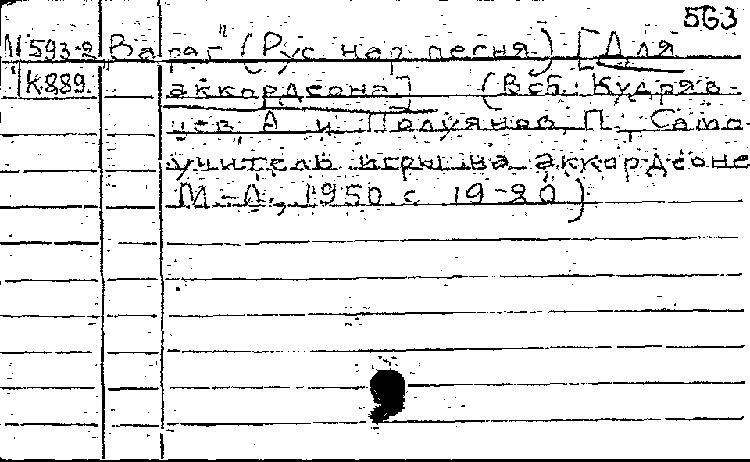 563
М 593-2 (Рус. нар. песня) [Для
К889. аккордеона.] (В сб.: Кудряв-
цев А. и Полуянов, П. Само-
учитель игры на аккордеоне
М.-Л., 1950 с 19-20)